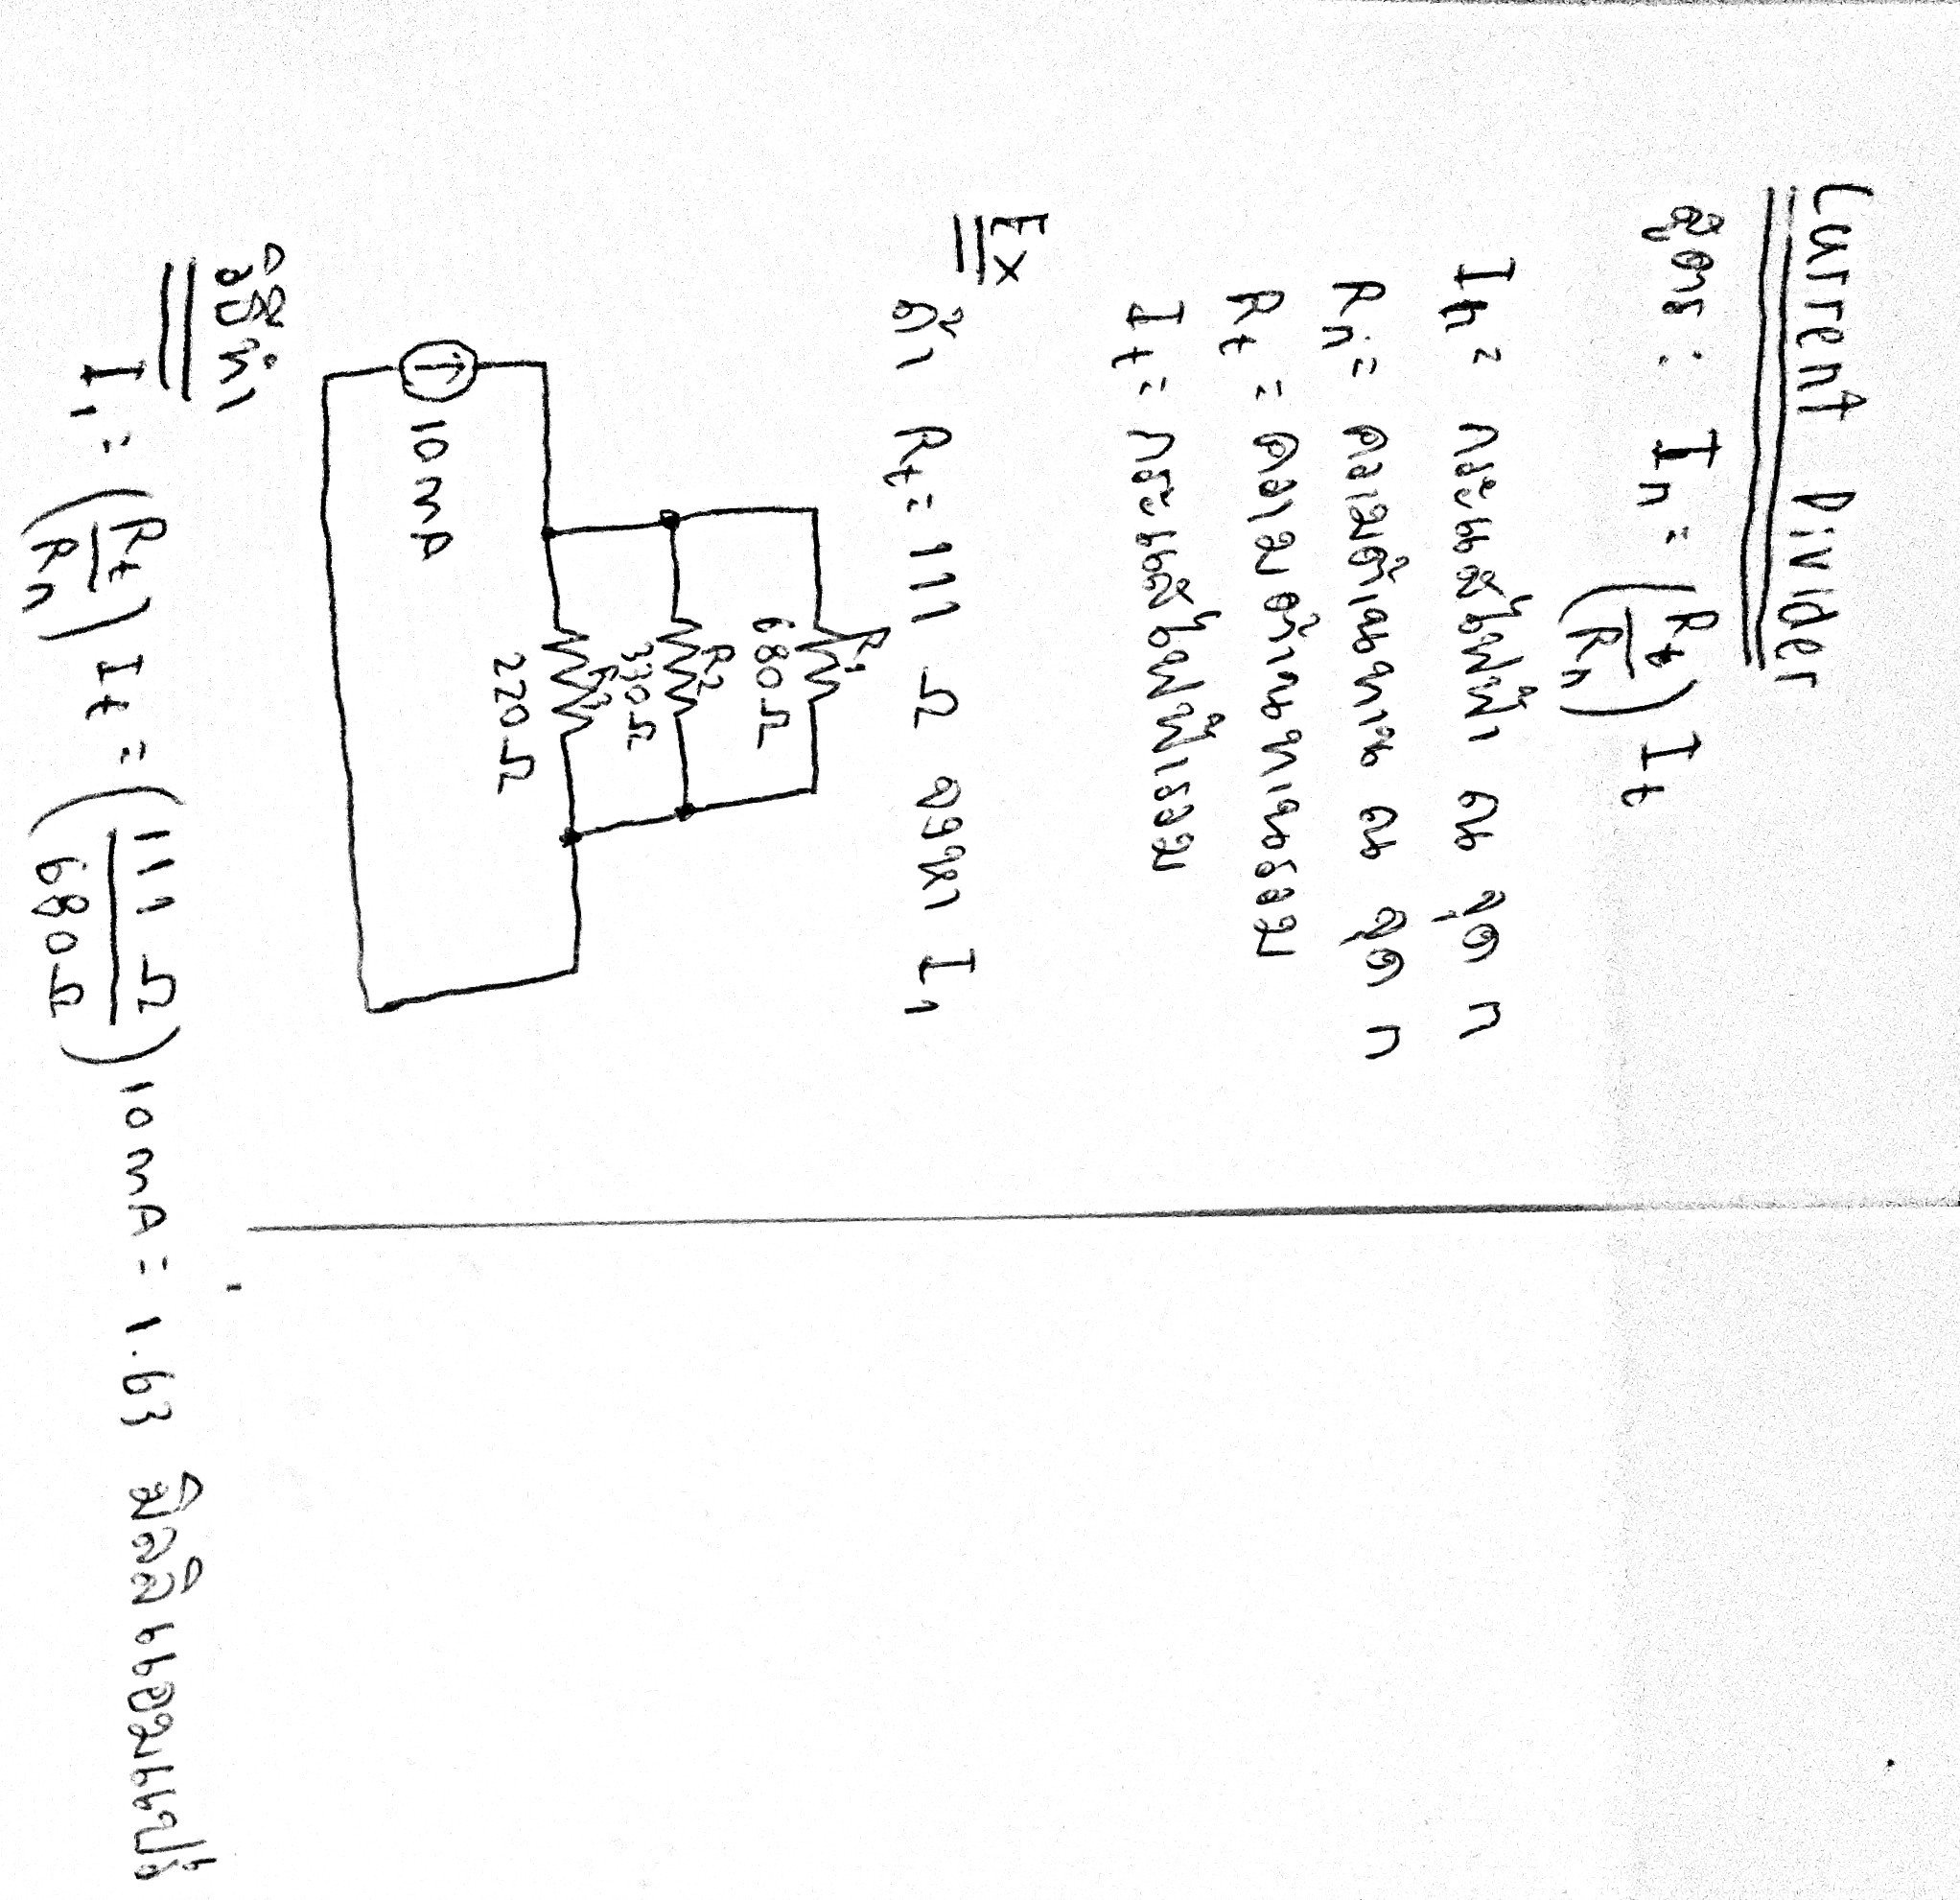 Current Divider
สูตร : In = (Rt/Rn) It
In = กระแสไฟฟ้า ณ จุด n
Rn = ความต้านทาน ณ จุด n
Rt = ความต้านทานรวม
It = กระแสไฟฟ้ารวม
Ex
ถ้า Rt = 111 Ω จงหา I1
R1
680Ω
R2
330Ω
R3
220Ω
10mA
วิธีทำ
I1 = (Rt/Rn) It = (111 Ω/680Ω) 10mA = 1.63 มิลลิแอมแปร์